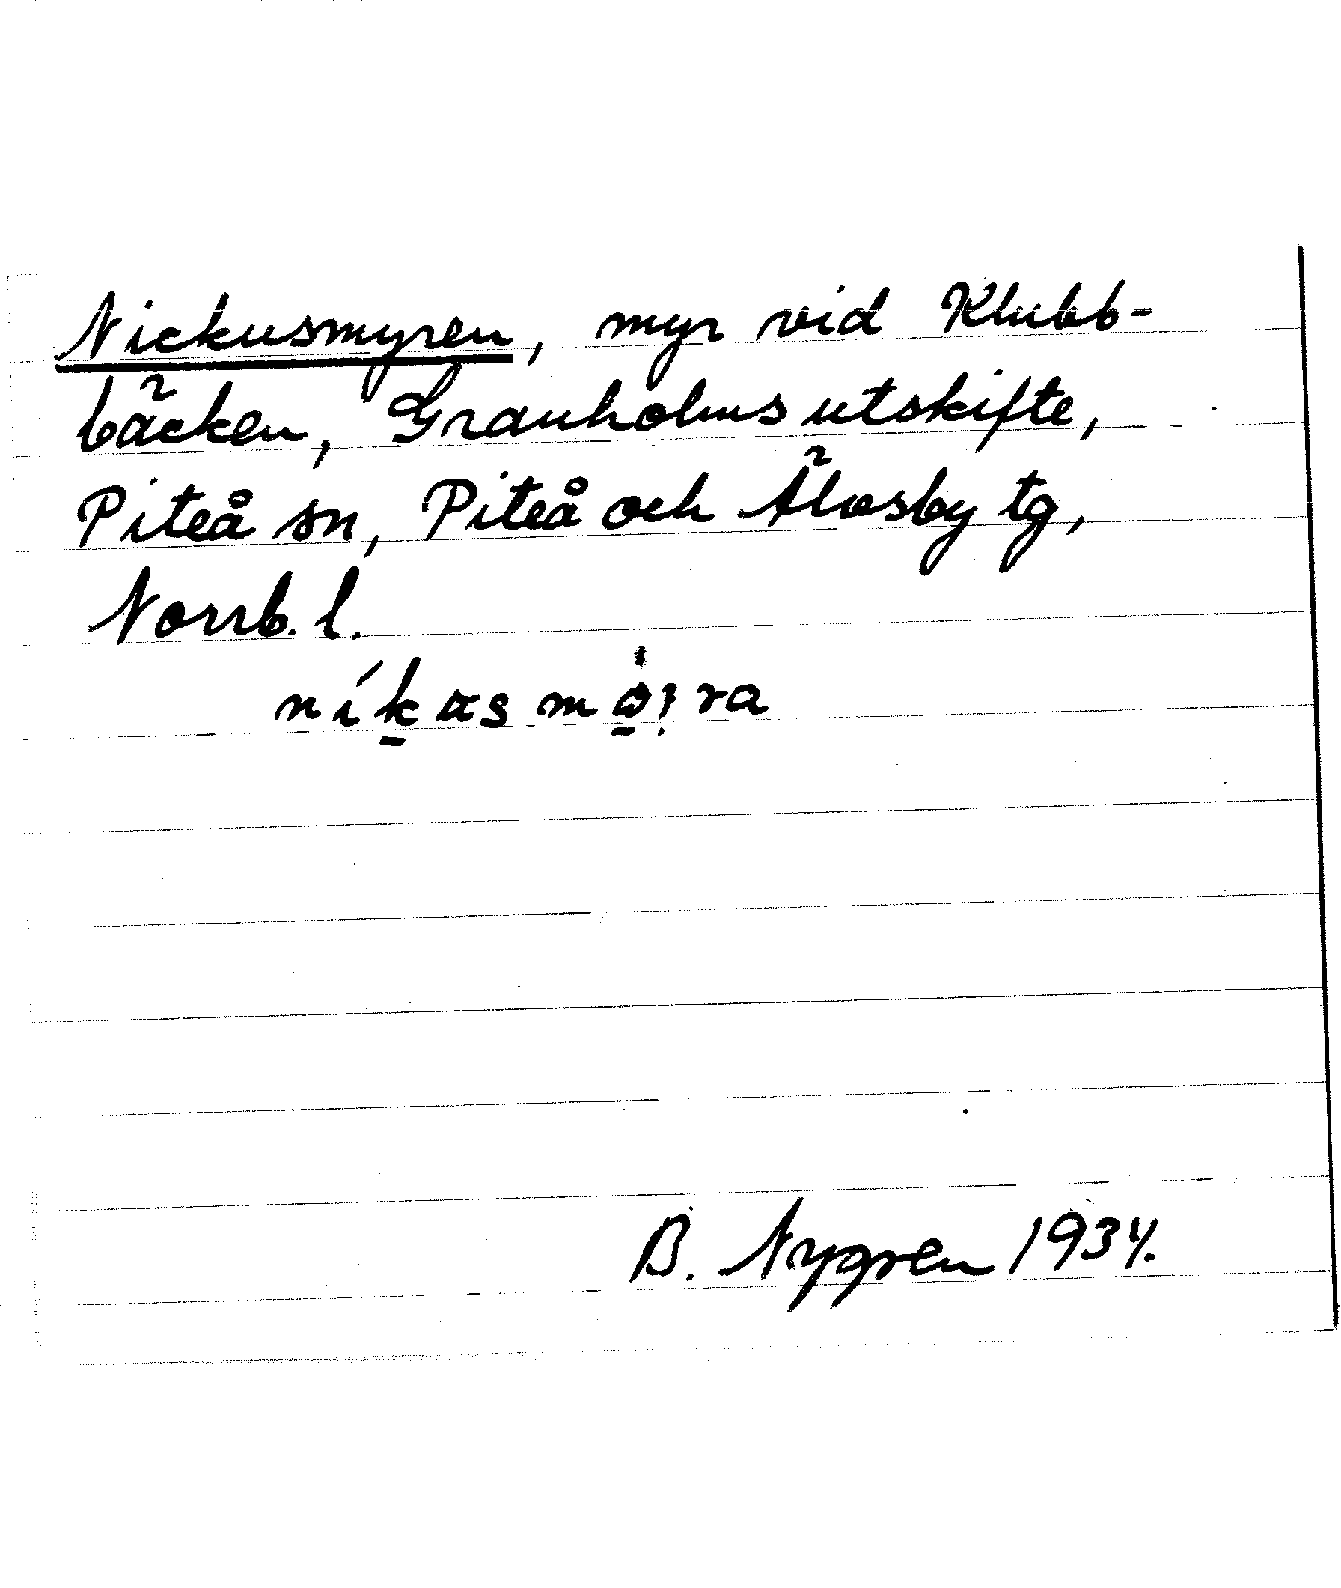 Nickusmyren, myr vid Klubb-
bäcken, Granholms utskifte,
Piteå sn, Piteå och Älvsby tg,
Norrb. l.
níkas mø̀ra
B. Nygren 1934.